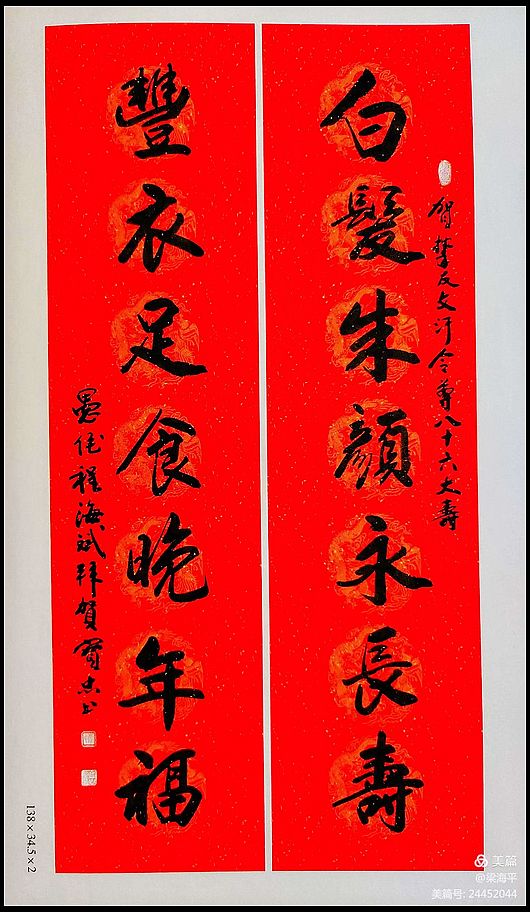 白髮朱顏永長壽
賀摯友文汗令尊八十六大壽
豐衣足食晚年福
愚侄程海斌拜賀
138×34.5×2
美篇
@梁海平
美篇号: 24452044